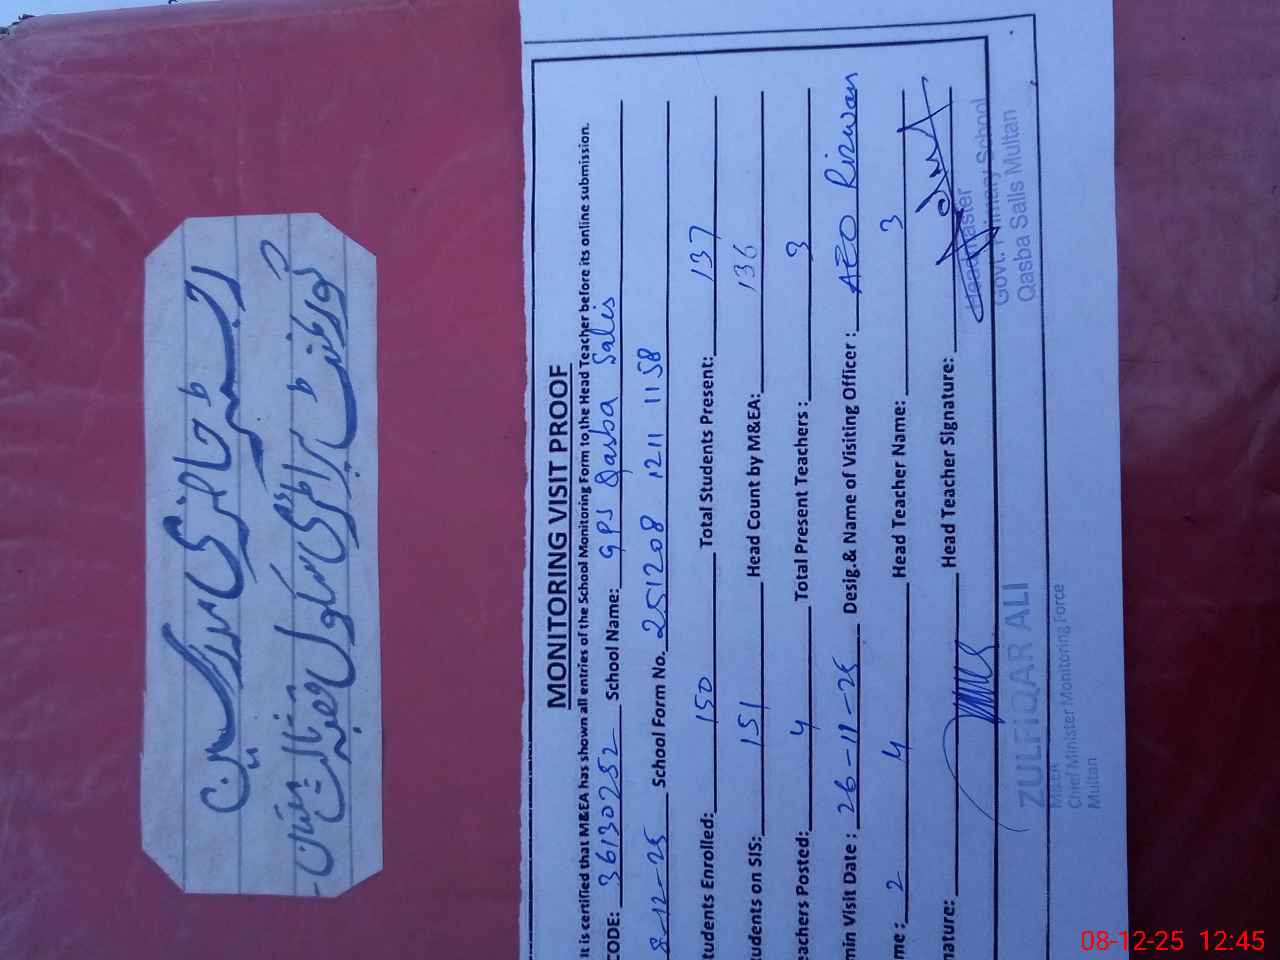 رجسٹر حاضری مدرسین
گورنمنٹ پرائمری سکول قصبہ
ملتان
MONITORING VISIT PROOF
It is certified that M&EA has shown all entries of the School Monitoring Form to the Head Teacher before its online submission.
CODE: 36130252 School Name: GPS Qasba Salis
8-12-25 School Form No. 251208 1211 1158
tudents Enrolled: 150 Total Students Present: 137
tudents on SIS: 151 Head Count by M&EA: 136
eachers Posted: 4 Total Present Teachers: 3
min Visit Date: 26-11-25 Desig.& Name of Visiting Officer: AEO Rizwan
me: 2 4 Head Teacher Name: 3
nature: Head Teacher Signature:
Headmaster
Govt. Primary School
Qasba Salls Multan
ZULFIQAR ALI
M&EA
Chief Minister Monitoring Force
Multan
08-12-25 12:45